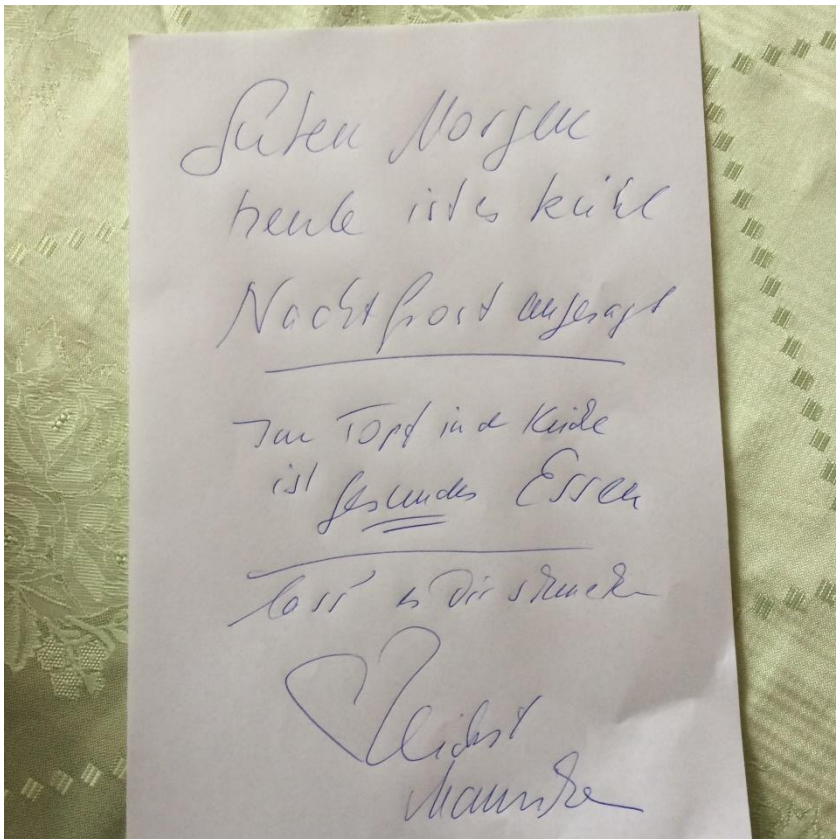 Guten Morgen
heute ist es kühl
Nachtfrost angesagt
Im Topf in d Küche
ist gesundes Essen
lass es Dir schmecken